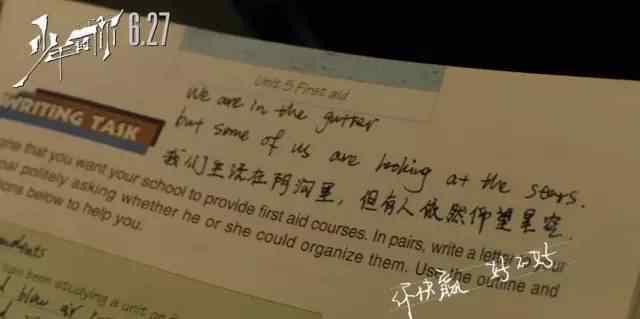 少年的你 6.27
Unit 5 First aid
we are in the gutter
but some of us are looking at the stars.
WRITING TASK
我们生活在阴沟里，但有人依然仰望星空.
gine that you want your school to provide first aid courses. In pairs, write a letter to your
pal politely asking whether he or she could organize them. Use the outline and
ions below to help you.
赢 好不好
been studying a unit on
blow air